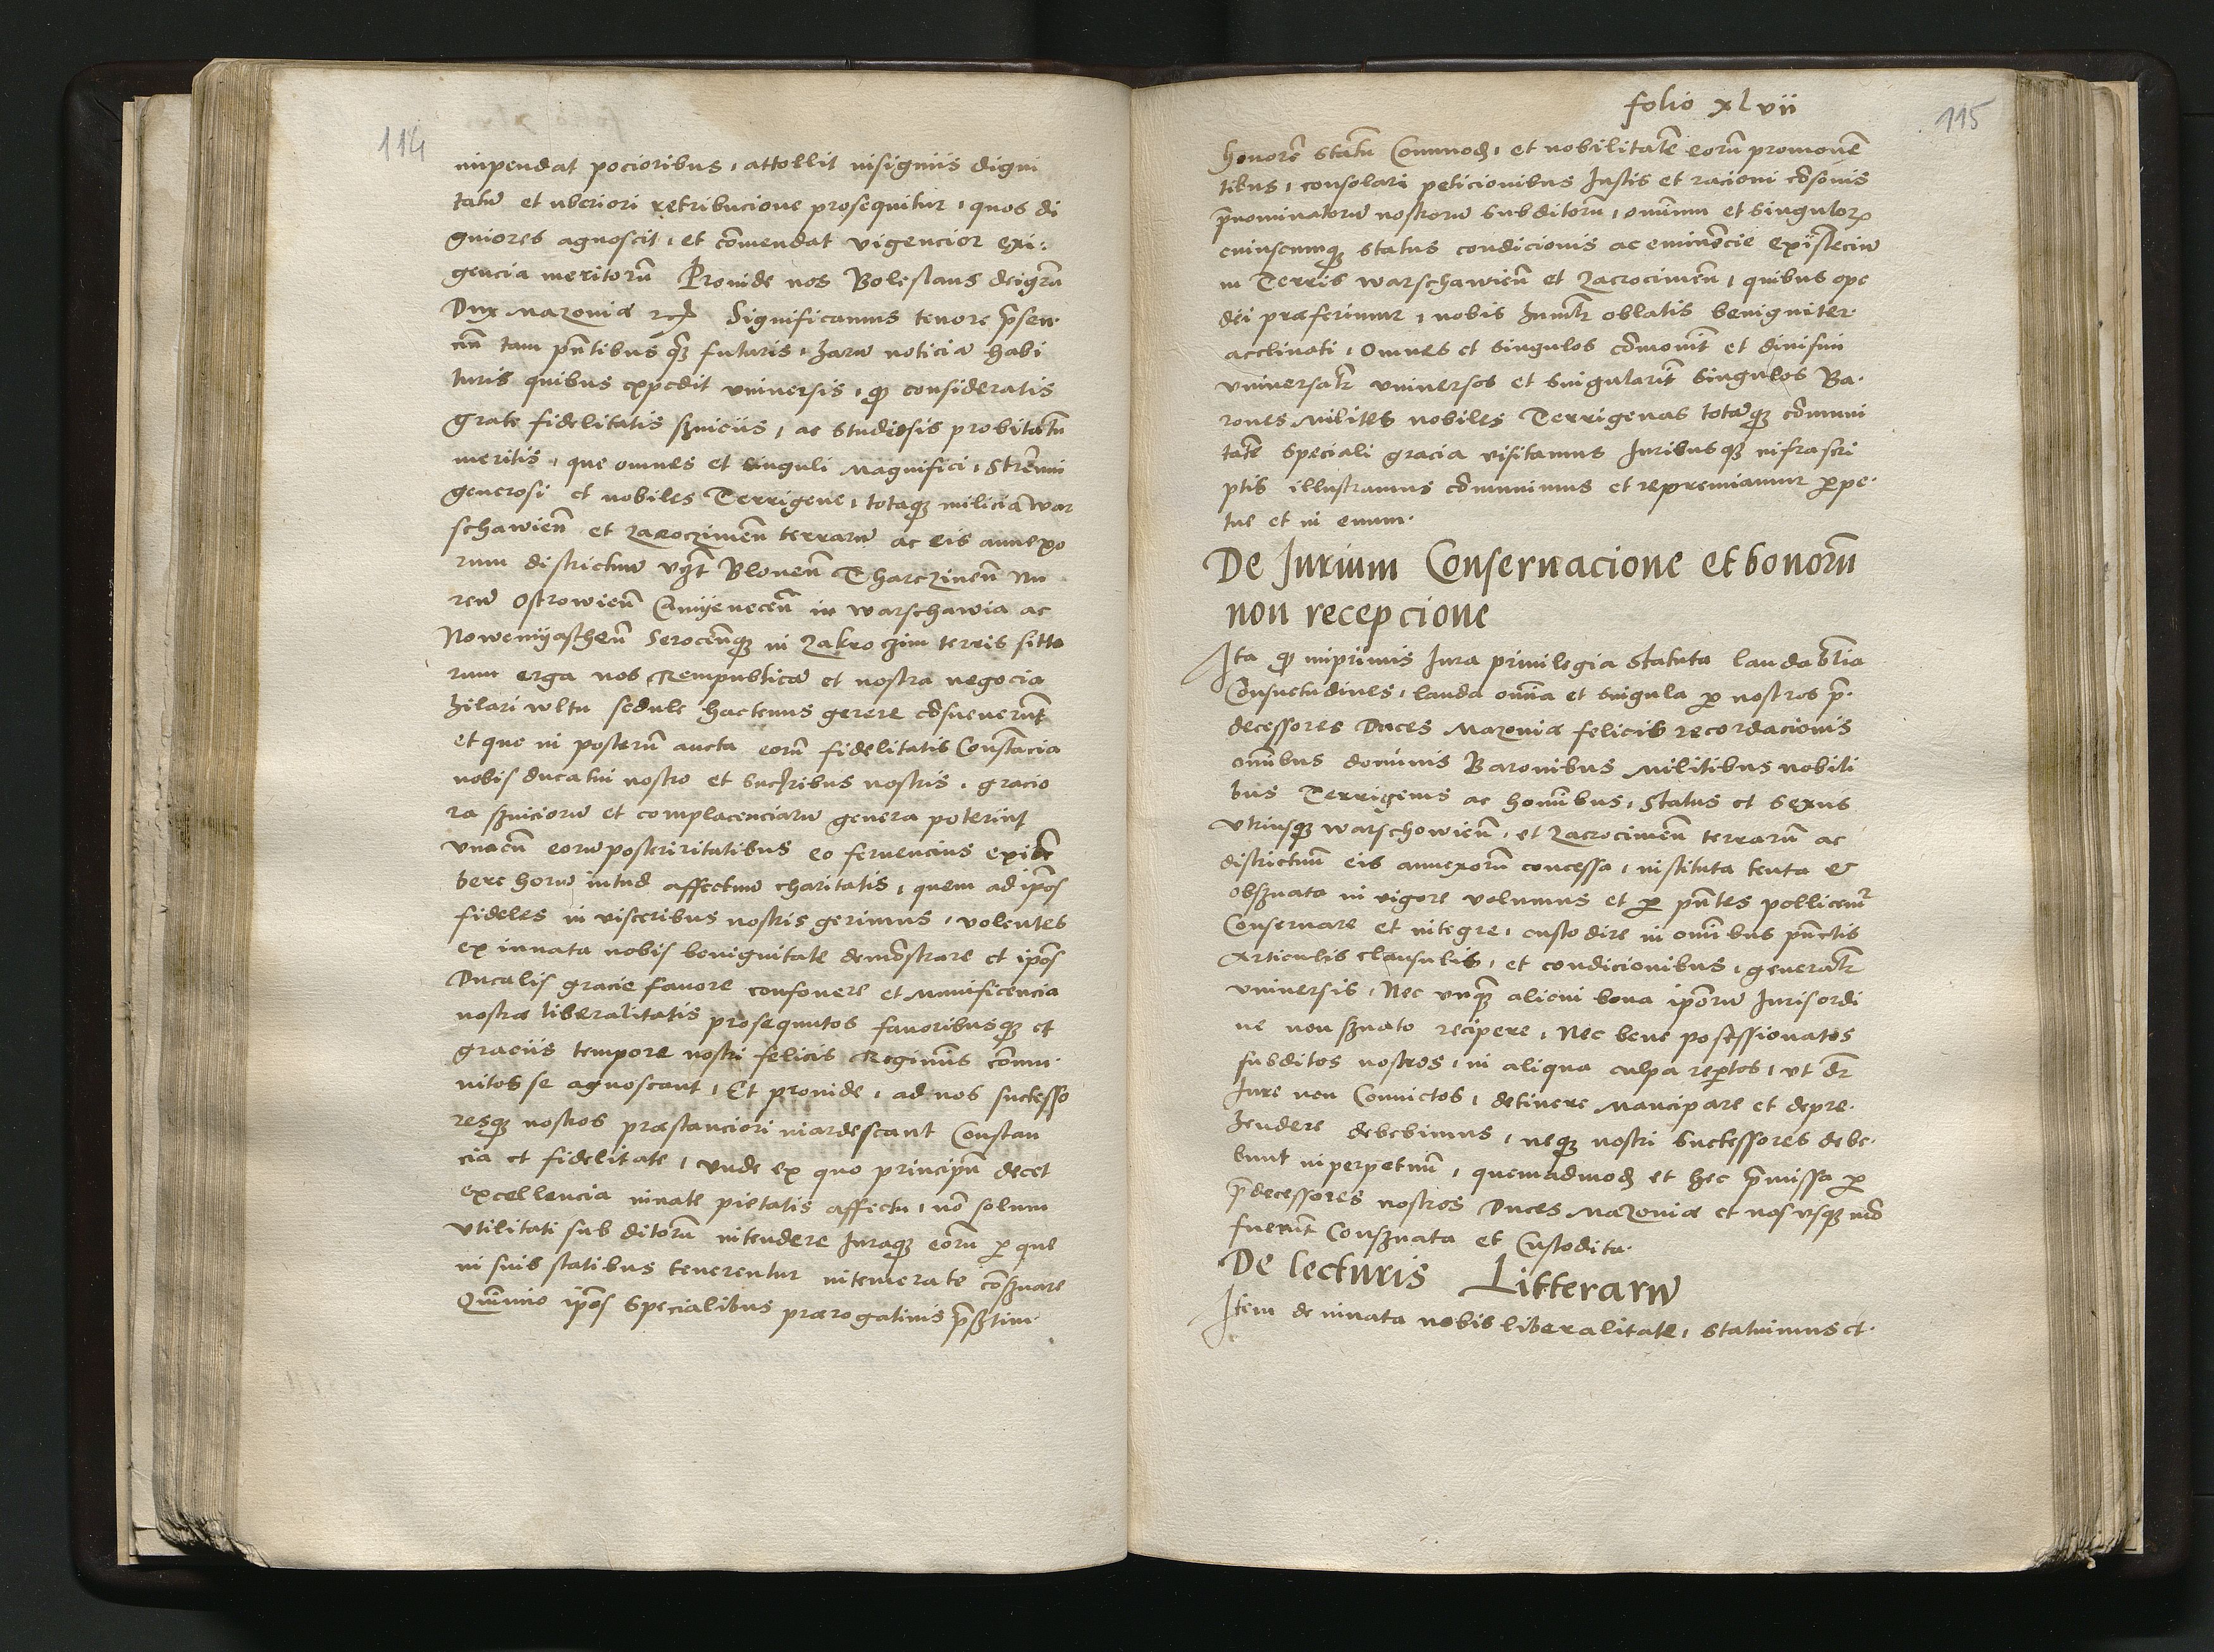 114
impendat pocioribus, attollit insigniis digni
tatum et uberiori retribucione prosequitur, quos di
gniores agnoscit, et cōmendat vigencior exi:
gencia meritorū Provide nos Boleslaus deigrā
Dux Mazoniæ Significamus tenore p̄sen
ciū tam pn̄tibus qꝫ futuris, harum noticiam habi
turis quibus expedit vniversis, ꝙ consideratis
grate fidelitatis sꝫuiciis, ac studiosis probitatū
meritis, que omnes et singuli Magnifici, Strēnui
generosi et nobiles Terrigene, totaqꝫ milicia war
schawieñ et zaroczimeñ terrarum ac eis annexo
rum districtuum vꝫt Bloneñ Tharczineñ Nu
reñ Ostrowieñ Camyeneceñ in warschawia ac
Nowemyastheñ Seroceñqꝫ in zakroczim terris sitto
rum erga nos Rempublicam et nostra negocia
hilari wltu sedule hactenus gerere cōsueuerūt
et que in posterū aucta eorū fidelitatis Constācia
nobis ducatui nostro et Successoribus nostris, gracio
ra sꝫuiciorum et complacenciarum genera poterint
vnacū eorum posteriritatibus eo feruencius exibe
bere horum intud affectum charitatis, quem ad ip̄os
fideles in visceribus nostris gerimus, volentes
ex innata nobis benignitate demōstrare et ip̄os
Ducalis gracie fauore confouere et Munificencia
nostræ liberalitatis prosequutos fauoribusqꝫ et
graciis tempore nostri felicis Regiminis cōmu
nitos se agnoscant, Et provide, ad nos successo
resqꝫ nostros præstanciori inardescant Constan
cia et fidelitate, vnde ex quo principū decet
excellencia innate pietatis affectu, nō solum
vtilitati subditorū intendere Iuraqꝫ eorū p que
in suis statibus tenerentur intemerate cōsꝫuare
Quīimo ip̄os specialibus prærogatiuis
folio xlvii
115
honorē statū Commodꝫ, et nobilitatē eorū promouē
tibus, consolari peticionibus Iustis et racioni cōsonis
p̄nominatorum nostrorum subditorū, omnium et singuloꝝ
cuiuscumqꝫ status condicionis ac eminēcie existēcium
in Terris warschawieñ et zacrocimeñ, quibus ope
dei præferimur, nobis humīlr oblatis benigniter
acclinati, Omnes et singulos cōmouīt et diuisim
vniversalr vniversos et singularit singulos Ba
rones Milites nobiles Terrigenas totamqꝫ cōmuni
tatē speciali gracia visitamus Iuribusqꝫ infrascri
ptis illustramus cōmunimus et repremiamur ꝑpe
tue et in euum.
De Iurium Conseruacione et bonorū
non recepcione
Ita ꝙ inprimis Iura priuilegia statuta laudab̄lia
Consuetudines, lauda omnia et singula ꝑ nostros p̄
decessores Duces Mazoniæ felicis recordacionis
omībus dominis Baronibus Militibus nobili
bus Terrigenis ac homībus, status et sexus
vtriusqꝫ warschowieñ, et zacrocimeñ terrarū ac
districtuū eis annexorū concessa, instituta tenta et
obsꝫuata in vigore volumus et ꝑ pn̄tes pollicemr
Conseruare et integre, custodire in omībus pūctis
Articulis clausulis, et condicionibus, generalr
vniversis, Nec vnqꝫ alicui bona ip̄orum Iurisordi
ne non sꝫuato recipere, Nec bene possessionatos
subditos nostros, in aliqua culpa reꝑtos, vt dr̄
Iure non Conuictos, detinere Mancipare et depre
hendere debebimus, neqꝫ nostri Successores debe
bunt inperpetuū, quemadmodꝫ et hec p̄missa ꝑ
p̄decessores nostros Duces Mazoniæ et nos vsqꝫ mō
fuerūt Consꝫuata et Custodita.
De lecturis Litterarum
Item de innata nobis liberalitate, statuimus et